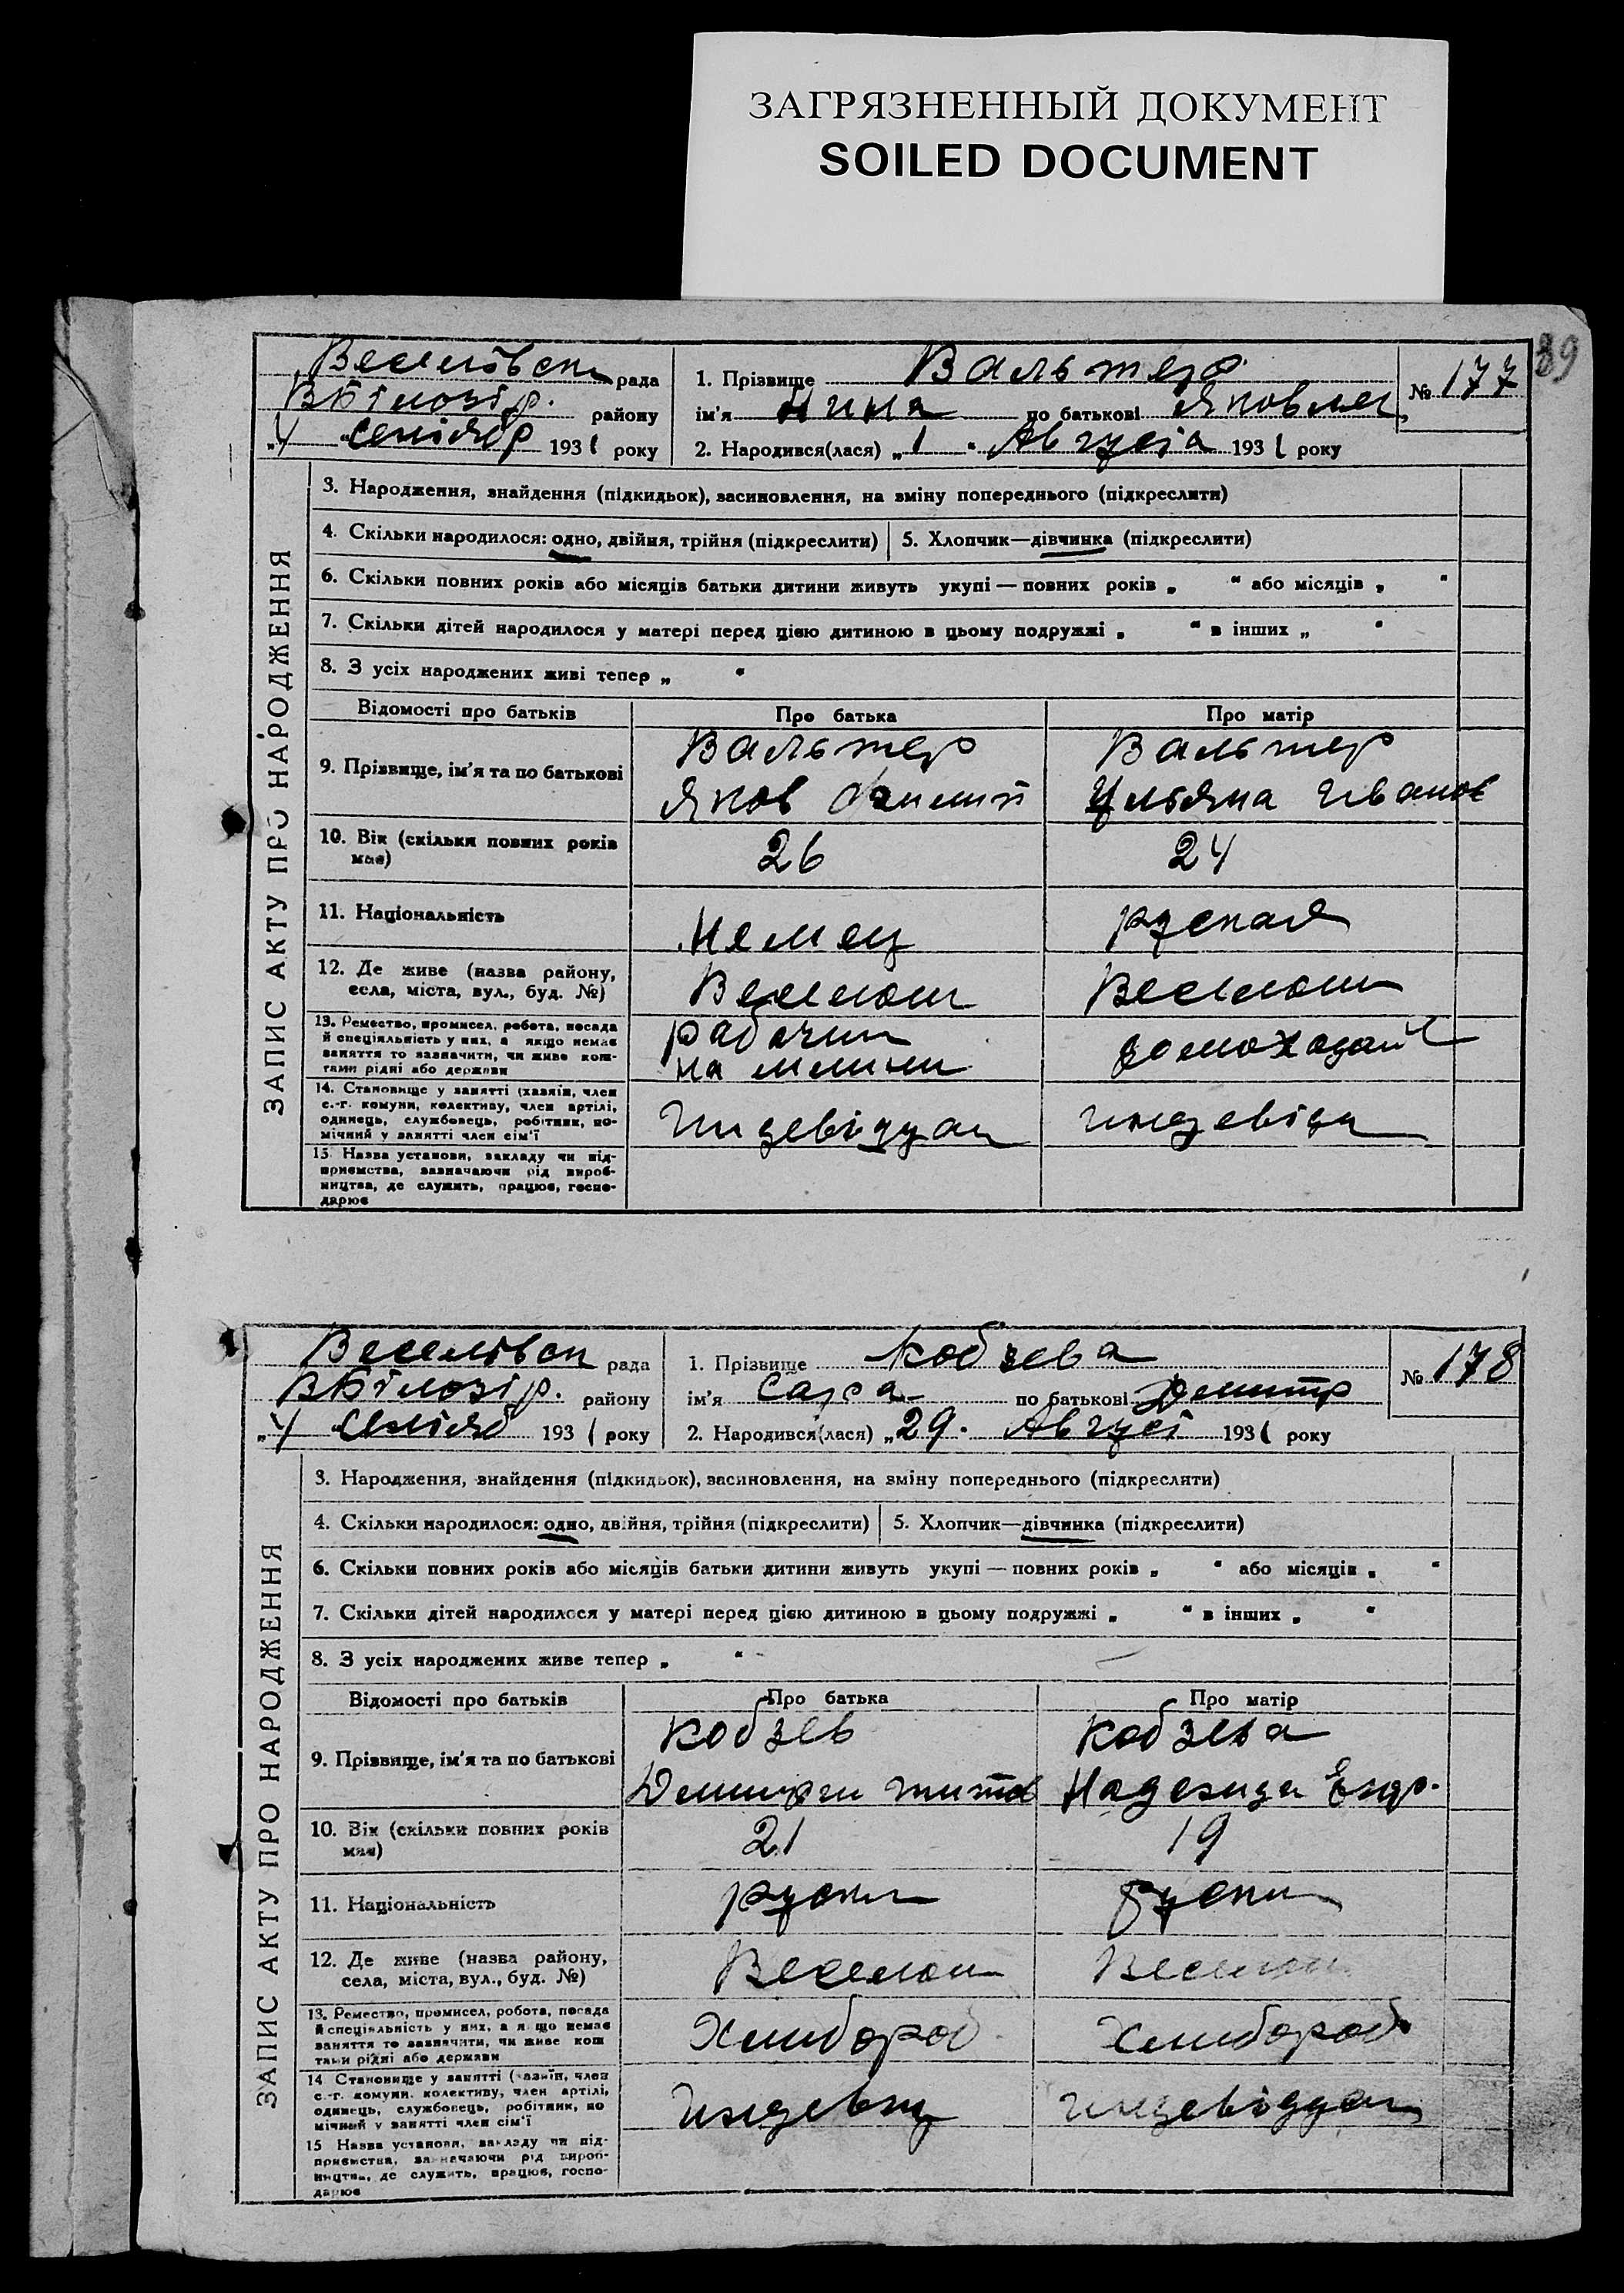 ЗАГРЯЗНЕННЫЙ ДОКУМЕНТ
SOILED DOCUMENT
89
ЗАПИС АКТУ ПРО НАРОДЖЕННЯ
рада
ВБілозір. району
4 1931 року
1. Прізвище Вальтер
ім'я Нина по батькові Яковлев
2. Народився(лася) „1 " Августа 1931 року
№ 177
3. Народження, знайдення (підкидьок), засиновлення, на зміну попереднього (підкреслити)
4. Скільки народилося: одно, двійня, трійня (підкреслити) 5. Хлопчик—дівчинка (підкреслити)
6. Скільки повних років або місяців батьки дитини живуть укупі — повних років „ “ або місяців „ “
7. Скільки дітей народилося у матері перед цією дитиною в цьому подружжі „ “ в інших „ “
8. З усіх народжених живі тепер „ “
Відомості про батьків Про батька Про матір
9. Прізвище, ім'я та по батькові
Вальтер Вальтер
Яков Ульяна Иванов
10. Вік (скільки повних років має) 26 24
11. Національність Немец руская
12. Де живе (назва району,
села, міста, вул., буд. №)
13. Ремество, промисел, робота, посада
й спеціяльність у них, а якщо немає
заняття то зазначити, чи живе кош-
тами рідні або держави
рабочий
на
14. Становище у занятті (хазяїн, член
с.-г. комуни, колективу, член артілі,
одинець, службовець, робітник, по-
мічний у занятті член сім'ї
15. Назва установи, закладу чи під-
приємства, зазначаючи рід вироб-
ництва, де служить, працює, госпо-
дарює
ЗАПИС АКТУ ПРО НАРОДЖЕННЯ
рада
ВБілозір. району
4 1931 року
1. Прізвище Кобзева
ім'я по батькові Дмитр
2. Народився(лася) „29. Август 1931 року
№ 178
3. Народження, знайдення (підкидьок), засиновлення, на зміну попереднього (підкреслити)
4. Скільки народилося: одно, двійня, трійня (підкреслити) 5. Хлопчик—дівчинка (підкреслити)
6. Скільки повних років або місяців батьки дитини живуть укупі — повних років „ “ або місяців „ “
7. Скільки дітей народилося у матері перед цією дитиною в цьому подружжі „ “ в інших „ “
8. З усіх народжених живе тепер „ “
Відомості про батьків Про батька Про матір
9. Прізвище, ім'я та по батькові
Кобзев Кобзева
Титов
10. Вік (скільки повних років має) 21 19
11. Національність руски руски
12. Де живе (назва району,
села, міста, вул., буд. №)
13. Ремество, промисел, робота, посада
й спеціяльність у них, а якщо немає
заняття то зазначити, чи живе кош
тами рідні або держави
Хлибороб Хлибороб
14 Становище у занятті (хазяїн, член
с.-г. комуни. колективу, член артілі,
одинець, службовець, робітник, по
мічний у занятті член сім'ї
15 Назва установи, закладу чи під-
приємства, зазначаючи рід вироб-
ництва, де служить, працює, госпо-
дарює